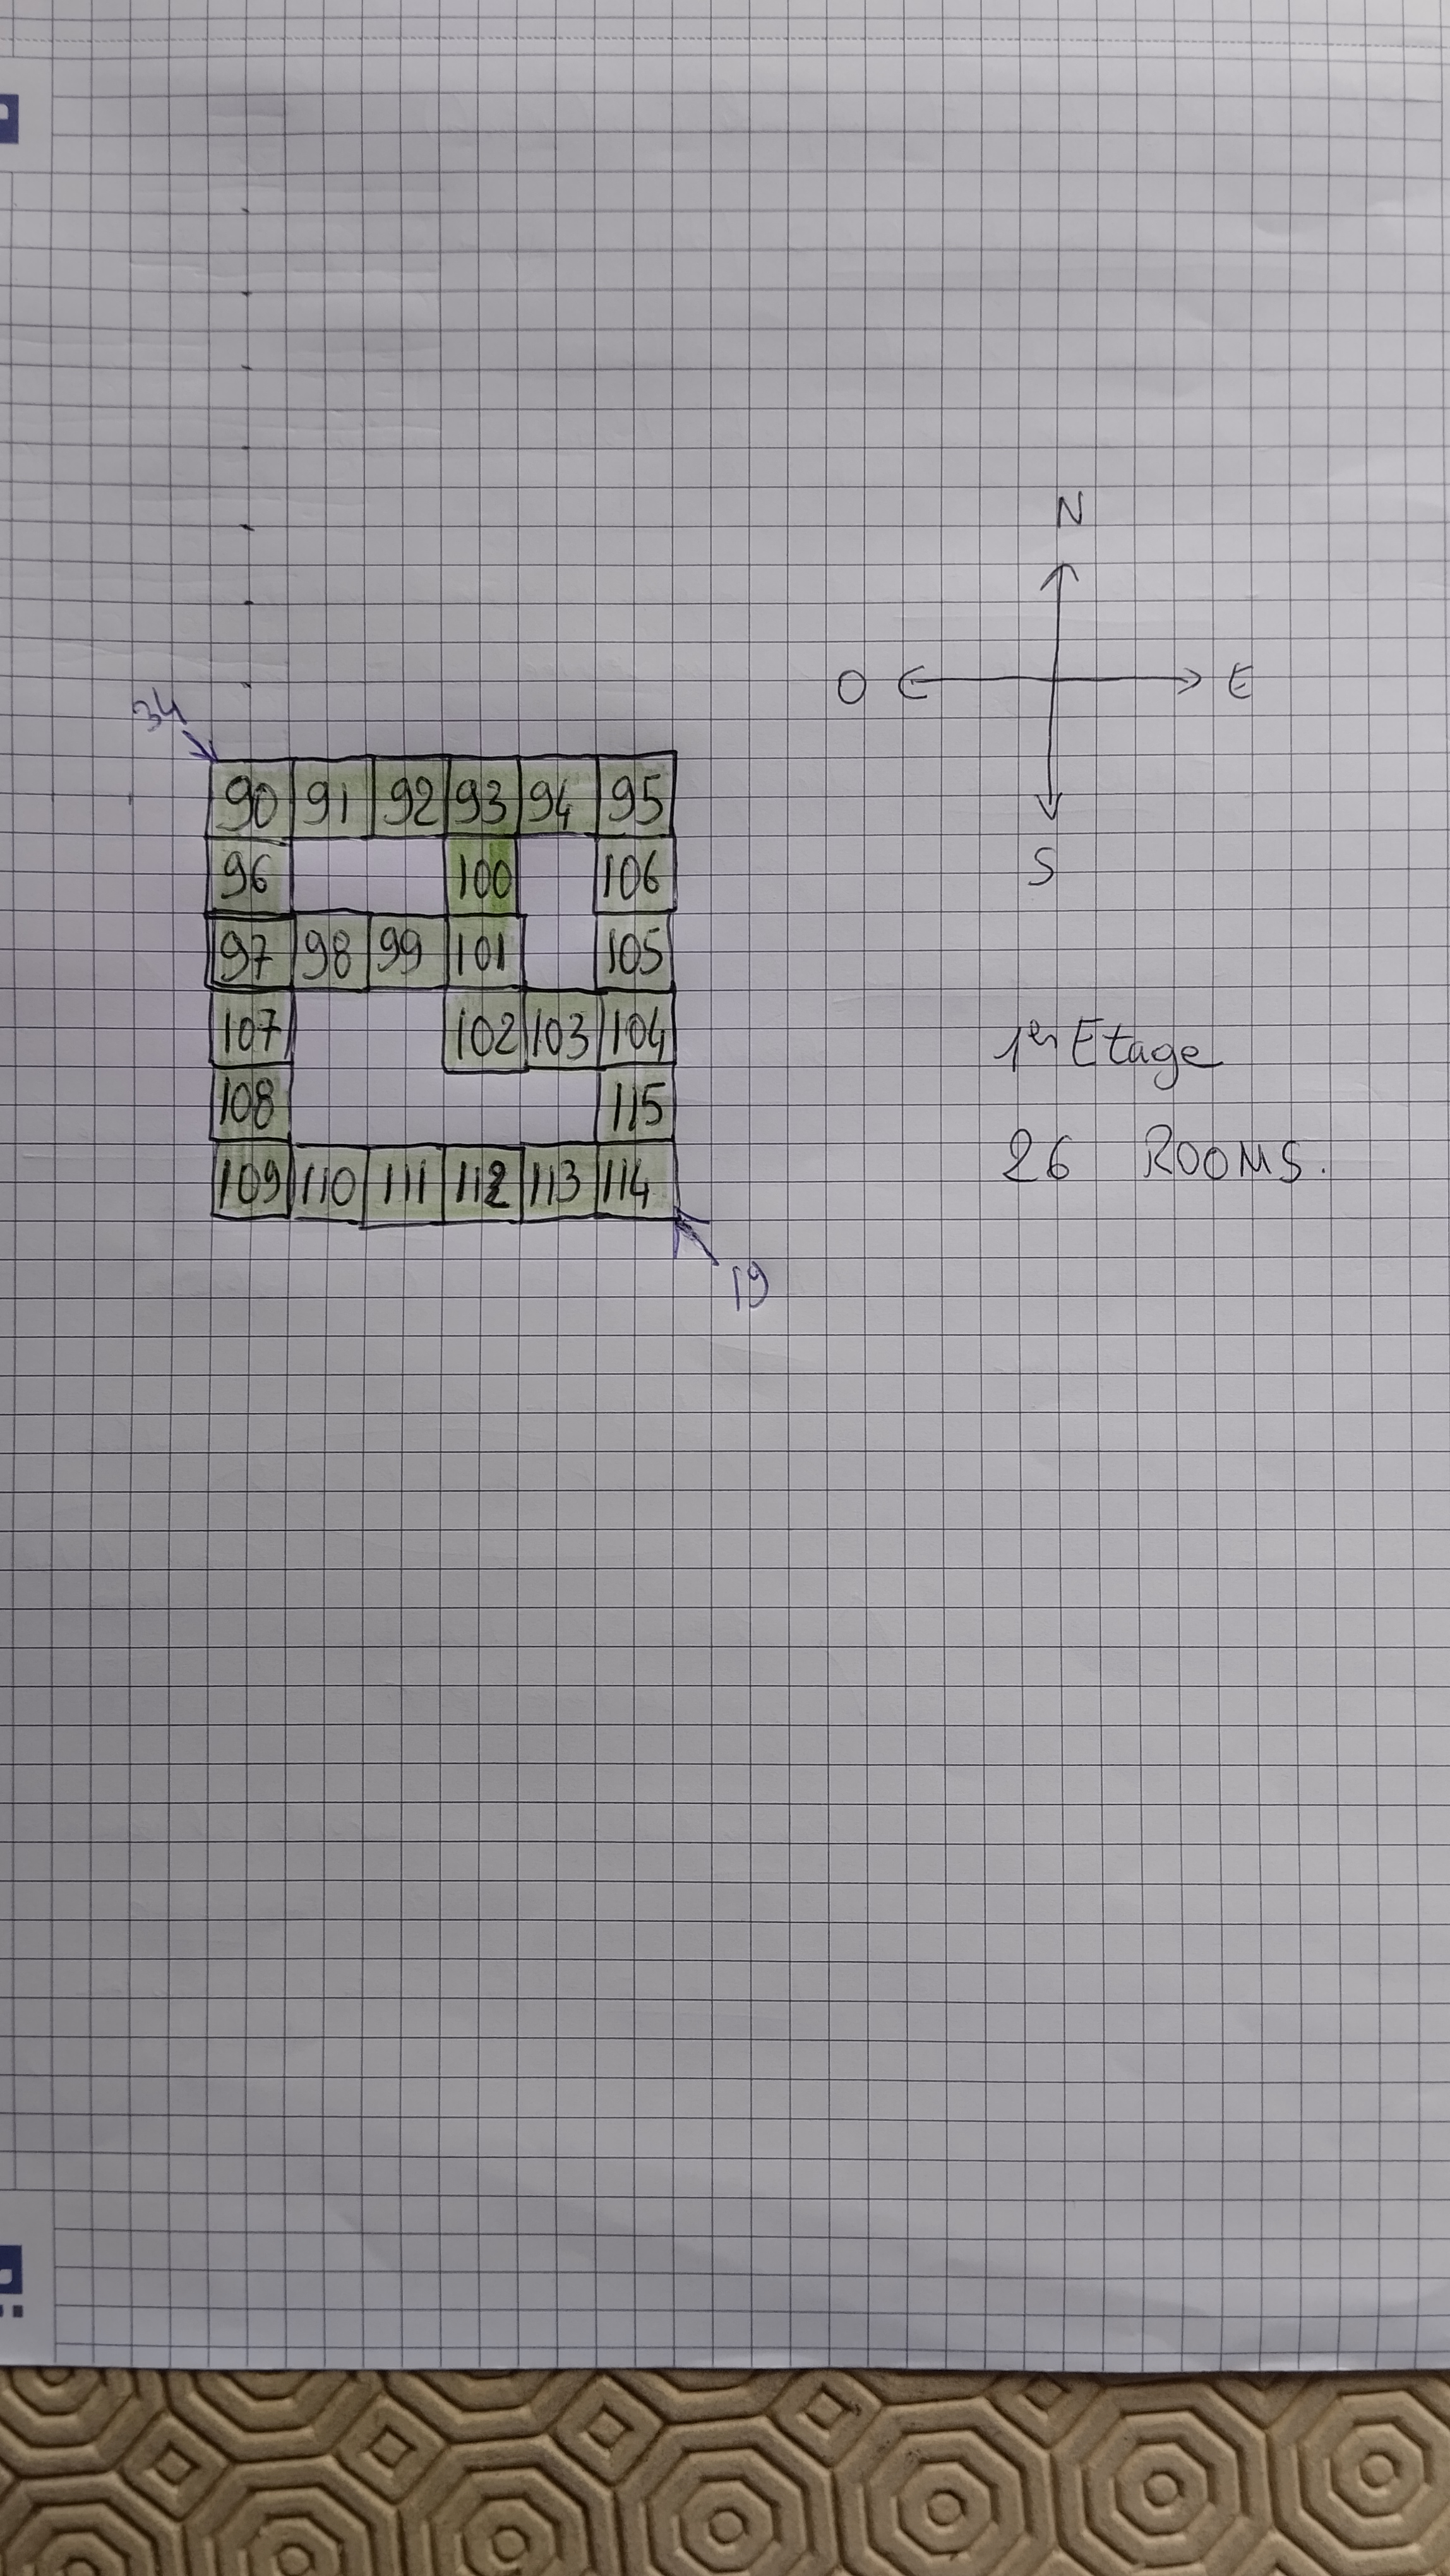 N
O E
S
34
90 91 92 93 94 95
96 100 106
97 98 99 101 105
107 102 103 104
108 115
109 110 111 112 113 114
19
1er Etage
26 ROOMS.